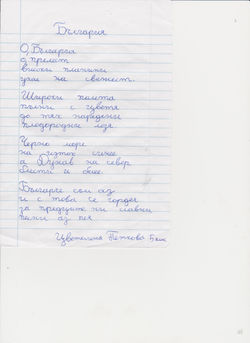 България
О, България
а прелест
високи планини
ухаи на свежест.
Широки полета
пълни с цветя
до тях наредени
плодородни лозя.
Черно море
на изток синее
а Дунав на север
блести и
Българче съм аз
и с това се гордея
за предците ни славни
песни аз пея
Цветелина Пенкова 5 клас